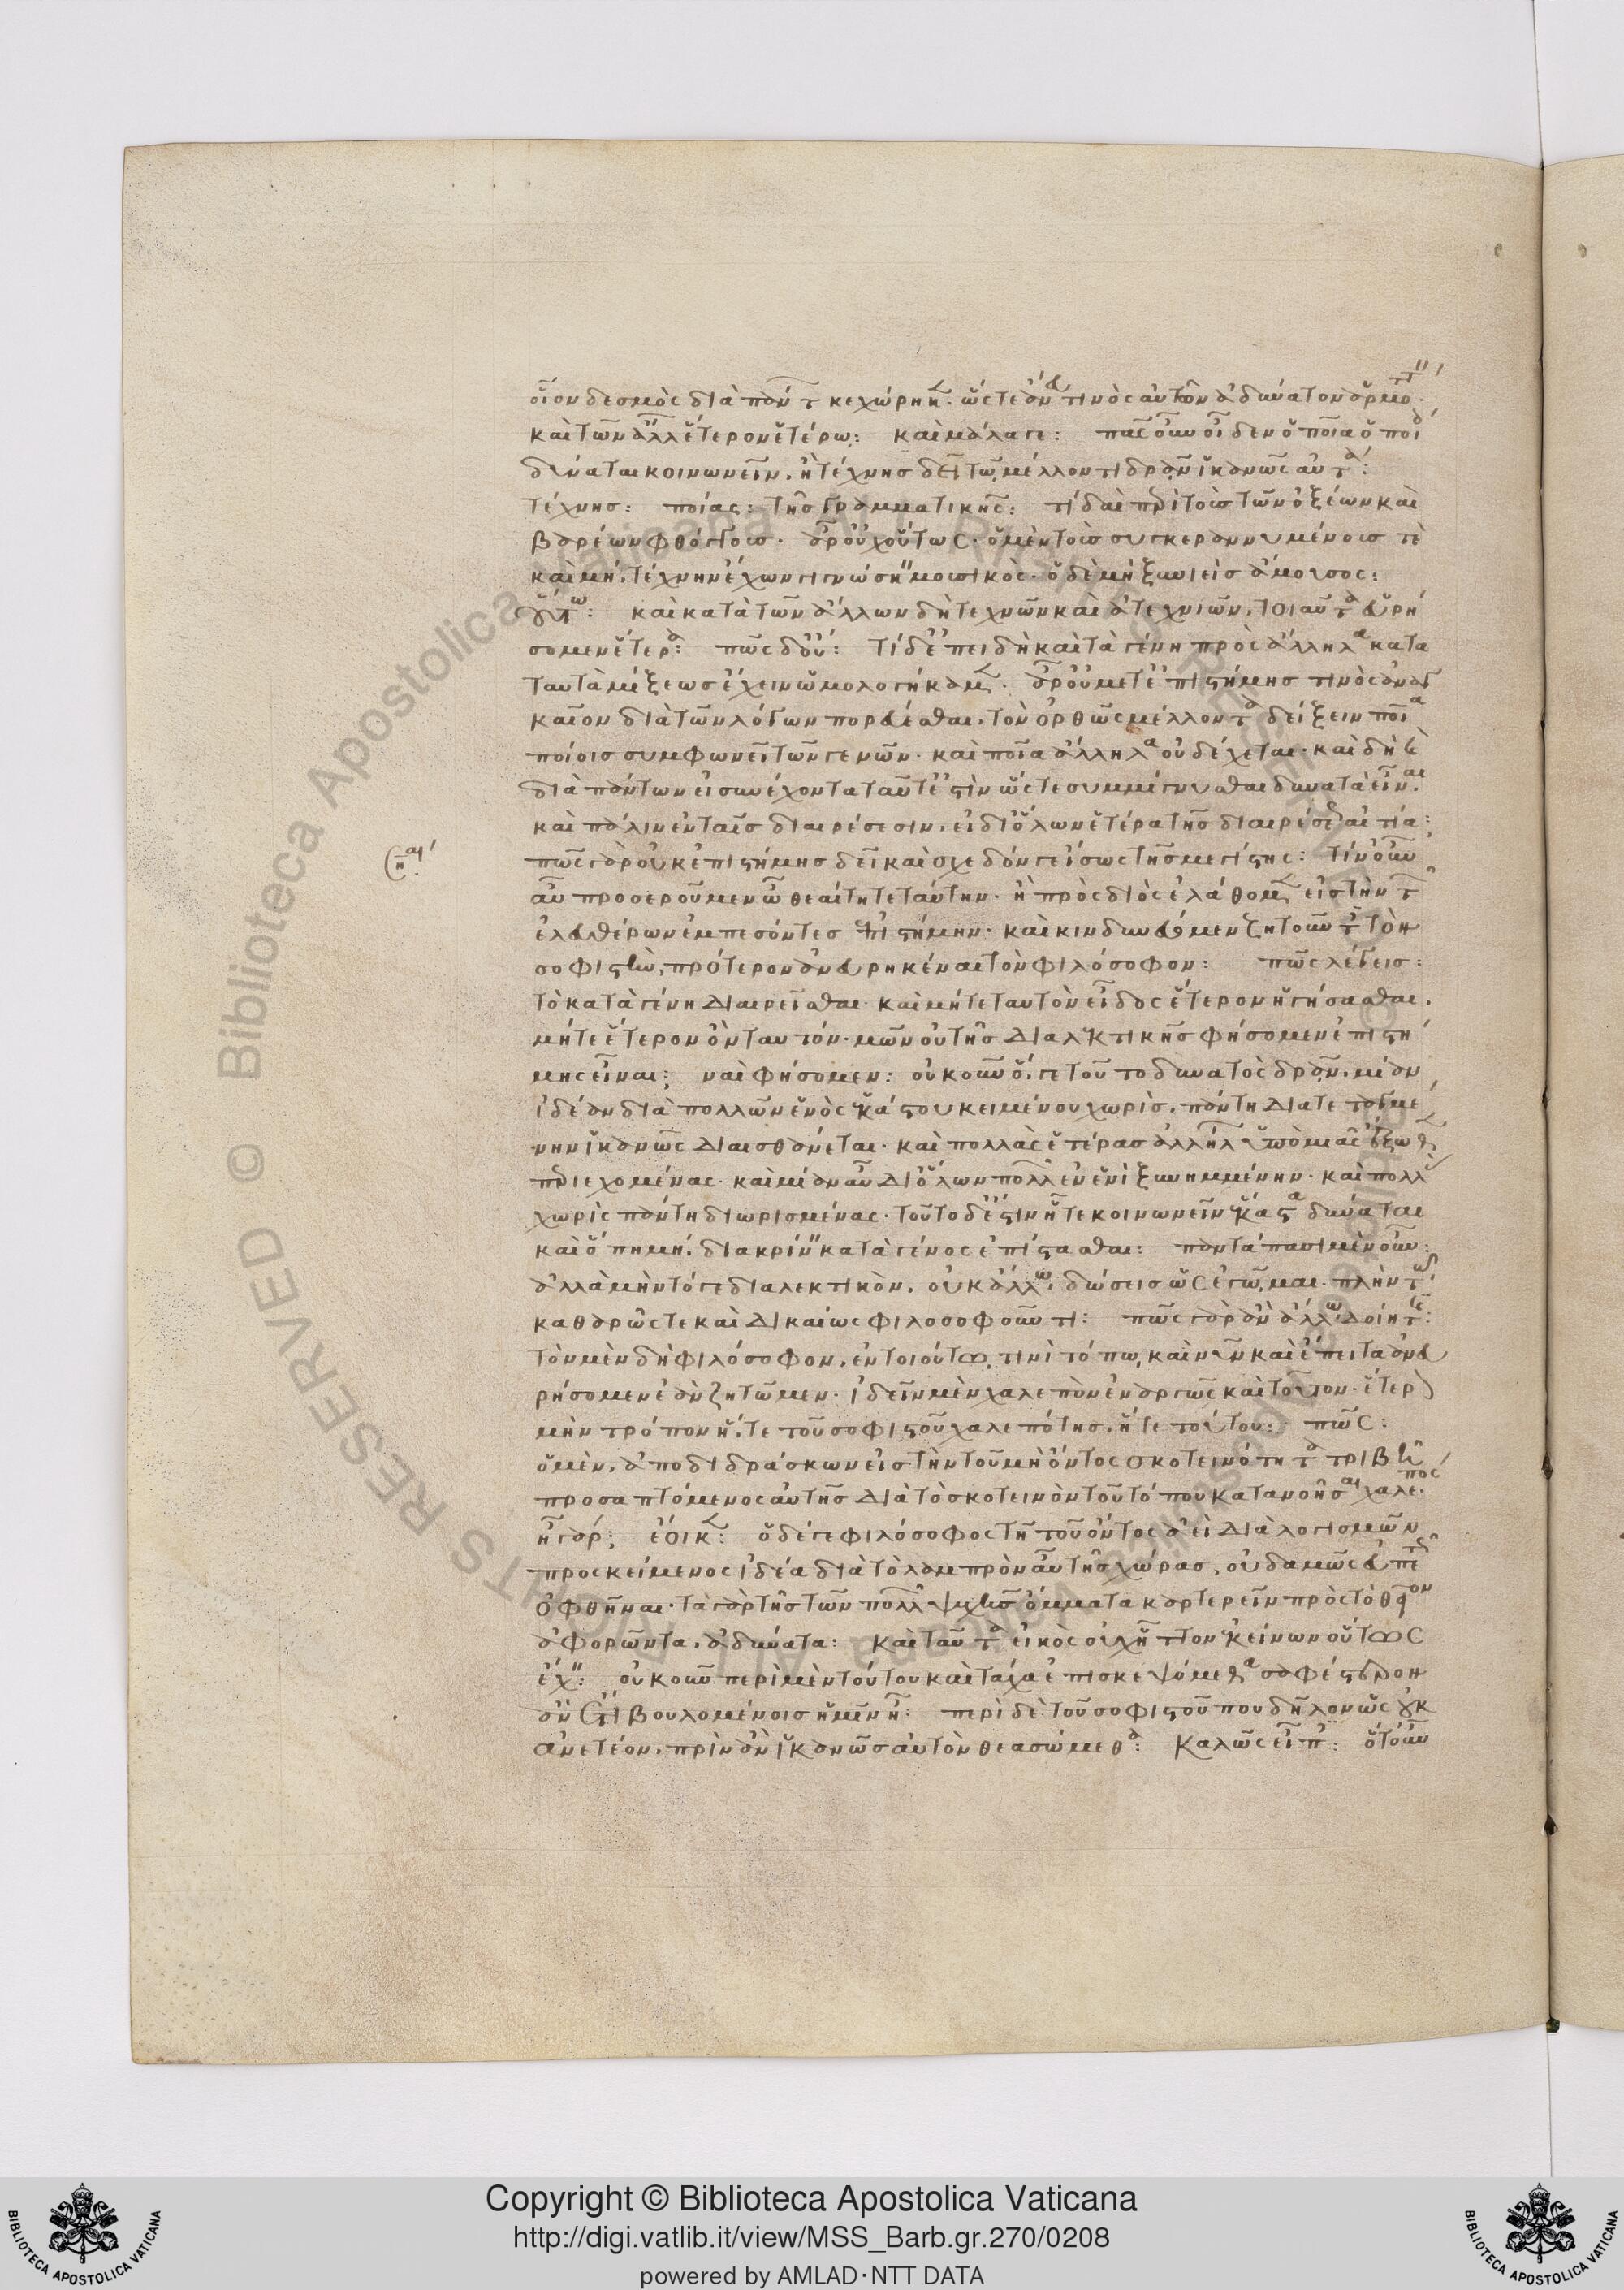 οἷον δεσμὸς διὰ πάντ κεχώρηκ. ὥστε ἄνευ τινὸς αὐτῶν ἀδύνατον ἁρμοττ
καὶ τῶν ἄλλ ἕτερον ἑτέρω: καὶ μάλα γε: πᾶς οὖν οἶδεν ὁποῖα ὁποί
δύναται κοινωνεῖν. ἢ τέχνης δεῖ τῶ μέλλοντι δρᾶν ἱκανῶς αὐτά:
τέχνης: ποίας: τῆς γραμματικῆς: τί δαὶ περὶ τοὺς τῶν ὀξέων καὶ
βαρέων φθόγγους. ἆρ οὐχ οὕτως. ὁ μὲν τοὺς συγκεραννυμένους τὲ
καὶ μὴ, τέχνην ἔχων γιγνώσκειν μουσικὸς. ὁ δὲ μὴ ξυνιεὶς ἄμουσος:
οὕτω: καὶ κατὰ τῶν ἄλλων δὴ τεχνῶν καὶ ἀτεχνιῶν, τοιαῦτα εὑρή
σομεν ἕτερα: πῶς δ' οὔ: τί δ' ἐπειδὴ καὶ τὰ γένη πρὸς ἄλληλα κατα
ταυτὰ μίξεως ἔχειν ὡμολογήκαμ. ἆρ οὐ μετ' ἐπιστήμης τινὸς ἀναγ
καῖον διὰ τῶν λόγων πορεύεσθαι. τὸν ὀρθῶς μέλλοντα δείξειν ποῖα
ποίοις συμφωνεῖ τῶν γενῶν. καὶ ποῖα ἄλληλα οὐ δέχεται. καὶ δὴ καὶ
διὰ πάντων εἰ συνέχοντα ταῦτ' ἐστὶν ὥστε συμμίγνυσθαι δυνατὰ εἶναι
καὶ πάλιν ἐν ταῖς διαιρέσεσιν, εἰ δι' ὅλων ἕτερα τῆς διαιρέσεως αἴτια:
πῶς γὰρ οὐκ ἐπιστήμης δεῖ καὶ σχεδόν γε ἴσως τῆς μεγίστης: τίν' οὖν
σημ
αὖ προσεροῦμεν ὦ θεαίτητε ταύτην. ἢ πρὸς διὸς ἐλάθομεν εἰς τὴν τ
ἐλευθέρων ἐμπεσόντες ἐπιστήμην. καὶ κινδυνεύομεν ζητοῦντ τὸν
σοφιστὴν, πρότερον ἀνευρηκέναι τὸν φιλόσοφον: πῶς λέγεις:
τὸ κατὰ γένη διαιρεῖσθαι. καὶ μήτε ταυτὸν εἶδος ἕτερον ἡγήσασθαι.
μήτε ἕτερον ὂν ταυτόν. μῶν οὐ τῆς διαλεκτικῆς φήσομεν ἐπιστή
μης εἶναι; ναὶ φήσομεν: οὐκοῦν ὅ, γε τοῦτο δυνατὸς δρᾶν. μίαν
ἰδέαν διὰ πολλῶν ἑνὸς ἑκάστου κειμένου χωρὶς. πάντη διατεταμέ
νην ἱκανῶς διαισθάνεται. καὶ πολλὰς ἑτέρας ἀλλήλ ὑπὸ μιᾶς ἔξωθ
περιεχομένας. καὶ μίαν αὖ δι' ὅλων πολλ ἐν ἑνὶ ξυνημμένην. καὶ πολλ
χωρὶς πάντη διωρισμένας. τοῦτο δ' ἔστιν ἧ τε κοινωνεῖν ἕκαστα δύναται
καὶ ὅπη μή, διακρίνειν κατὰ γένος ἐπίστασθαι: παντάπασι μὲν οὖν:
ἀλλὰ μὴν τό γε διαλεκτικὸν, οὐκ ἄλλω δώσεις ὡς ἐγῶμαι. πλὴν τῶ
καθαρῶς τε καὶ δικαίως φιλοσοφοῦντι: πῶς γὰρ ἂν ἄλλω δοίη τις:
τὸν μὲν δὴ φιλόσοφον, ἐν τοιούτω τινὶ τόπω, καὶ νῦν καὶ ἔπειτα ἀνευ
ρήσομεν ἐὰν ζητῶμεν. ἰδεῖν μὲν χαλεπὸν ἐναργῶς καὶ τοῦτον. ἕτερον
μὴν τρόπον ἥ, τε τοῦ σοφιστοῦ χαλεπότης, ἥ τε τούτου: πῶς:
ὁ μὲν, ἀποδιδράσκων εἰς τὴν τοῦ μὴ ὄντος σκοτεινότητα τριβῆ
προσαπτόμενος αὐτῆς διὰ τὸ σκοτεινὸν τοῦ τόπου κατανοῆσαι χαλεπός
ἦ γάρ; ἔοικ: ὁ δέ γε φιλόσοφος τῆ τοῦ ὄντος ἀεὶ διὰ λογισμῶν
προσκείμενος ἰδέα διὰ τὸ λαμπρὸν αὖ τῆς χώρας, οὐδαμῶς εὐπετ
ὀφθῆναι. τὰ γὰρ τῆς τῶν πολλ ψυχῆς ὄμματα καρτερεῖν πρὸς τὸ θεῖον
ἀφορῶντα, ἀδύνατα: καὶ ταῦτα εἰκὸς οὐχ ἧττον ἐκείνων οὕτως
ἔχειν: οὐκοῦν περὶ μὲν τούτου καὶ τάχα ἐπισκεψόμεθα σαφέστερον
ἂν ἔτι βουλομένοις ἡμῖν ἦ: περὶ δὲ τοῦ σοφιστοῦ που δῆλον ὡς οὐκ
ἀνετέον. πρὶν ἂν ἱκανῶς αὐτὸν θεασώμεθα: Καλῶς εἶπ: ὅτ' οὖν
Copyright © Biblioteca Apostolica Vaticana
http://digi.vatlib.it/view/MSS_Barb.gr.270/0208
powered by AMLAD·NTT DATA
BIBLIOTECA APOSTOLICA VATICANA
BIBLIOTECA APOSTOLICA VATICANA